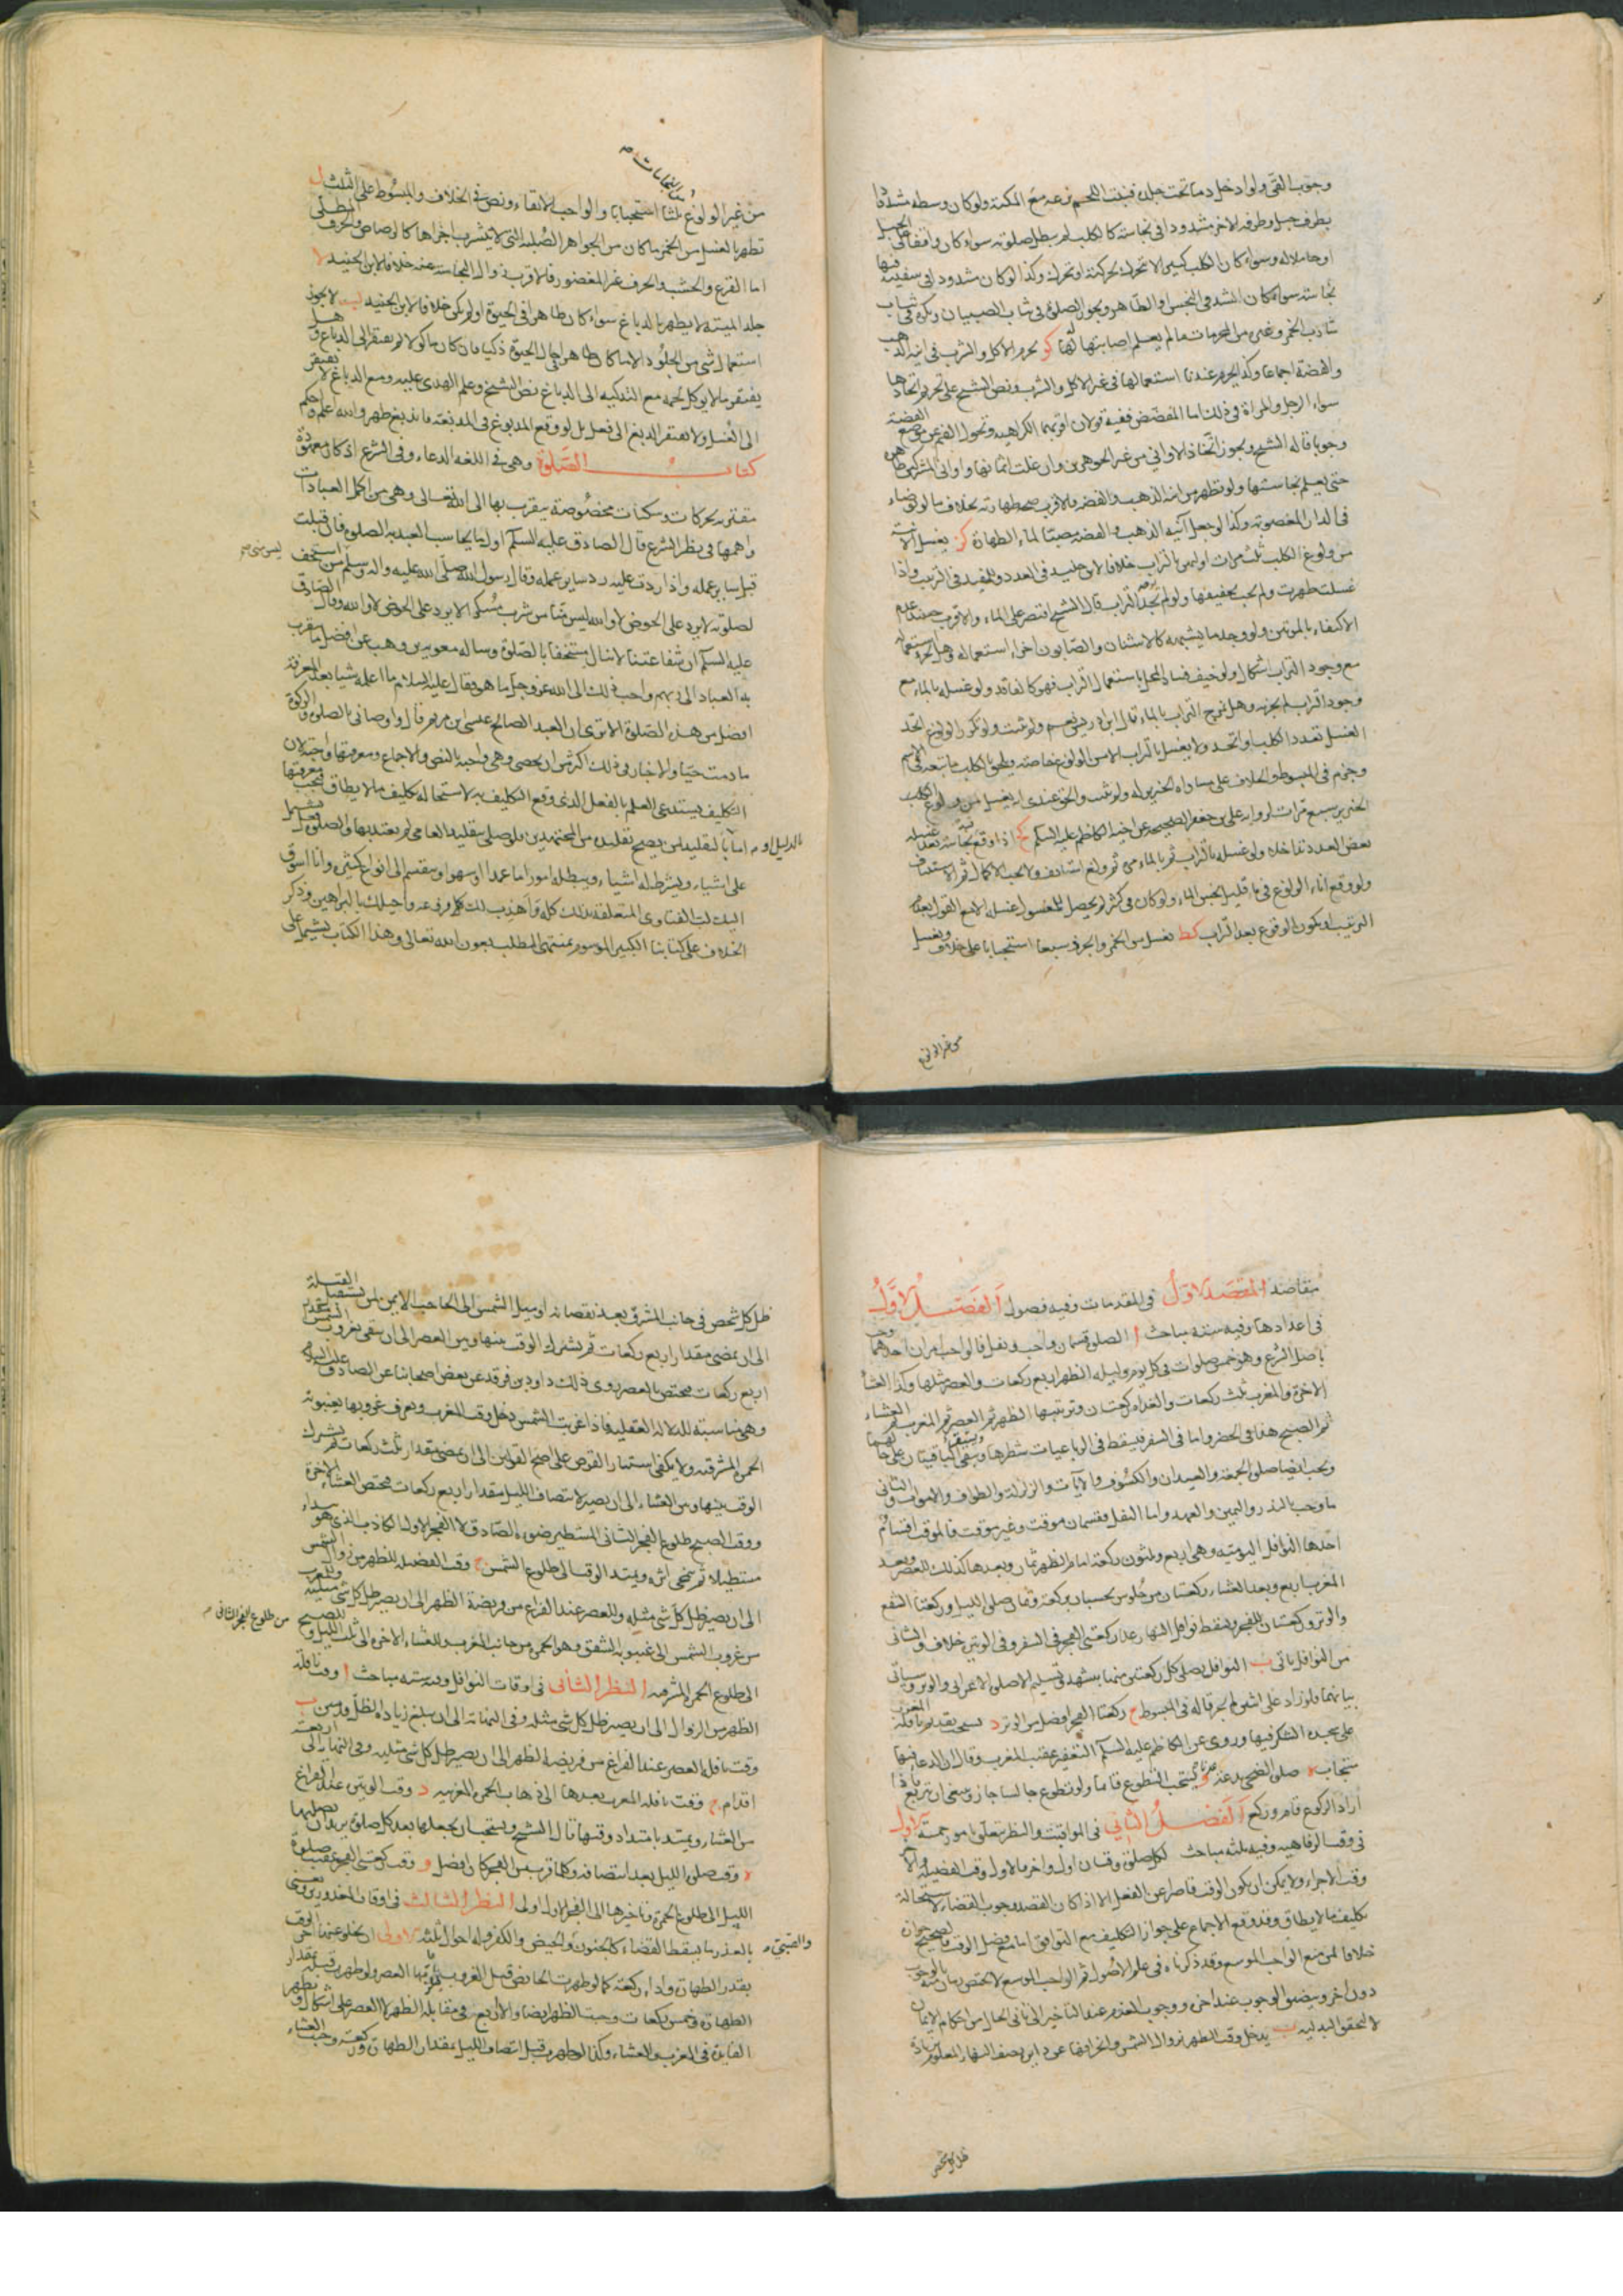 وجوب القئ ولو ادخل دما تحت جلده فنبت اللحم نزعه مع المكنة ولو كان وسطه مشدودا
بطرف حبل وطرفه الاخر مشدودا في نجاسة كالكلب لم يبطل صلوته سواء كان واقفا على الحبل
او حاملا له وسواء كان الكلب كبيرا لا تتحرك بحركته او تحرك وكذا لو كان مشدودا في سفينة فيها
نجاسة سواء كان الشد في النجس او الطاهر ويجوز الصلوة في ثياب الصبيان ويكره في ثياب
شارب الخمر وغيره من المحرمات ما لم يعلم اصابتها لها كو يحرم الاكل والشرب في انية الذهب
والفضة اجماعا وكذا يحرم عندنا استعمالها في غير الاكل والشرب ونص الشيخ على تحريم اتخاذها
سواء الرجل والمراة في ذلك اما المفضض ففيه قولان اقربهما الكراهية وتحول الفم عن موضع الفضة
وجوبا قاله الشيخ ويجوز اتخاذ الاواني من غير الجوهرين وان غلت اثمانها واواني المشركين طاهرة
حتى يعلم نجاستها ولو تطهر من انية الذهب والفضة فالاقرب صحة طهارته بخلاف ما لو توضاء
في الدار المغصوبة وكذا لو جعل آنية الذهب والفضة مصبا لماء الطهارة كز يغسل الانية
من ولوغ الكلب ثلث مرات اوليهن بالتراب خلافا لابن جنيد في العدد وللمفيد في الترتيب واذا
غسلت طهرت ولم يجب تجفيفها ولو لم يجد التراب قال الشيخ اقتصر على الماء والاقرب حينئذ عدم
الاكتفاء بالمرتين ولو وجد ما يشبهه كالاشنان والصابون اجزاء استعماله وهل يجزي استعماله
مع وجود التراب اشكال ولو خيف فساد المحل باستعمال التراب فهو كالفاقد ولو غسله بالماء مع
وجود التراب لم يجزه وهل يمزج التراب بالماء قال ابن ادريس نعم ولم يثبت ولو تكرر الولوغ اتحد
الغسل تعدد الكلب او اتحد ولا يغسل بالتراب الا من الولوغ خاصة ويلحق بالكلب ما يتبعه في الاسم
وجزم في المبسوط والخلاف على مساواة الخنزير له ولم يثبت والحق عندي انه يغسل من ولوغ الكلب
الخنزير سبع مرات لرواية علي بن جعفر الصحيحة عن اخيه الكاظم عليه السلم كح اذا وقع فيه نجاسة بعد غسله
بعض العدد تداخلا ولو غسله بالتراب ثم بالماء مرة ثم ولغ استانف ولا يجب الاكمال ثم الاستيناف
ولو وقع اناء الولوغ في ماء قليل نجس الماء ولو كان في كثير لم يحصل للمغسول غسلة الا مع القول بعدم
الترتيب او يكون الوقوع بعد التراب كط يغسل من الخمر والجرذ سبعا استحبابا على خلاف ويغسل
من غير الولوغ
من النجاسات
من غير الولوغ ثلثا استحبابا والواجب الانقاء ونص في الخلاف والمبسوط على الثلث ل
تطهر بالغسل من الخمر ما كان من الجواهر الصلبة التي لا يتشرب اجزاها كالرصاص والخزف المطلي
اما القرع والخشب والخزف غير المغضور فالاقرب زوال النجاسة عنه خلافا لابن الجنيد لا
جلد الميتة لا يطهر بالدباغ سواء كان طاهرا في الحيوة او لم يكن خلافا لابن الجنيد لب لا يجوز
استعمال شئ من الجلود الا ما كان طاهرا حال الحيوة ذكيا فان كان ماكولا لم يفتقر الى الدباغ وهل
يفتقر ما لا يوكل لحمه مع التذكية الى الدباغ نص الشيخ وعلم الهدى عليه ومع الدباغ لا يفتقر
الى الغسل ولا يفتقر الدبغ الى فعل بل لو وقع المدبوغ في المدبغة فاندبغ طهر والله اعلم واحكم
كتاب الصلوة وهي في اللغة الدعاء وفي الشرع اذكار معهودة
مقترنة بحركات وسكنات مخصوصة يتقرب بها الى الله تعالى وهي من اكمل العبادات
واهمها في نظر الشرع قال الصادق عليه السلم اول ما يحاسب العبد به الصلوة فان قبلت
قبل ساير عمله واذا ردت عليه رد ساير عمله وقال رسول الله صلى الله عليه واله وسلم من استخف
ليس مني صح
لصلوته لا يرد على الحوض لا والله ليس منا من شرب مسكرا لا يرد على الحوض لا والله وقال الصادق
عليه السلم ان شفاعتنا لا تنال مستخفا بالصلوة وساله معوية بن وهب عن افضل ما يتقرب
به العباد الى ربهم واحب ذلك الى الله عز وجل ما هو فقال عليه السلام ما اعلم شيا بعد المعرفة
افضل من هذه الصلوة الا ترى ان العبد الصالح عيسى ابن مريم قال واوصاني بالصلوة والزكوة
ما دمت حيا والاخبار في ذلك اكثر من ان يحصى وهي واجبة بالنص والاجماع ومعرفتها واجبة لان
التكليف يستدعي العلم بالفعل الذي وقع التكليف به لاستحالة تكليف ما لا يطاق فيجب معرفتها
بالدليل او صح
اما بالتقليد لمن يصح تقليده من المجتهدين فلو صلى بتقليد العامي لم يعتد بها والصلوة يشتمل
على اشياء ويشترط له اشياء ويبطله امور اما عمدا او سهوا وينقسم الى انواع كثيرة وانا اسوق
اليك لب الفتاوى المتعلقة بذلك كله واهذب لك كل فرع واحيلك بالبراهين وذكر
الخلاف على كتابنا الكبير الموسوم بمنتهى المطلب بعون الله تعالى وهذا الكتاب يشتمل على
مقاصد المقصد الاول في المقدمات وفيه فصول الفصل الاول
في اعدادها وفيه ستة مباحث ا الصلوة قسمان واجب ونفل فالواجب امران احدهما وجب
باصل الشرع وهو خمس صلوات في كل يوم وليلة الظهر اربع ركعات والعصر مثلها وكذا العشاء
الاخرة والمغرب ثلث ركعات والغداة ركعتان وترتيبها الظهر ثم العصر ثم المغرب ثم العشاء
ثم الصبح هذا في الحضر واما في السفر فيسقط في الرباعيات شطرها ويبقى الباقيتان على حالهما
ويجب ايضا صلوة الجمعة والعيدان والكسوف والآيات والزلزلة والطواف والاموات والثاني
ما وجب بالنذر واليمين والعهد واما النفل فقسمان موقت وغير موقت فالموقت اقسام
احدها النوافل اليومية وهي اربع وثلثون ركعة امام الظهر ثمان وبعدها كذلك للعصر وبعد
المغرب اربع وبعد العشاء ركعتان من جلوس يحسبان بركعة وثمان صلوة الليل وركعتا الشفع
والوتر وركعتان للفجر ويسقط نوافل النهار عدا ركعتي الفجر في السفر وفي الوتيرة خلاف والثاني
من النوافل ياتي ب النوافل يصلي كل ركعتين منها بتشهد وتسليم الا صلوة الاعرابي والوتر وسياتي
بيانهما فلو زاد على اثنين لم يجز قاله في المبسوط ج ركعتا الفجر افضل من الوتر د ينبغي تقديم نافلة المغرب
على سجدة الشكر فيها وروي عن الكاظم عليه السلم التعفير عقيب المغرب وقال ان الدعاء فيها
مستجاب ه صلوة الضحى بدعة و يستحب التطوع قائما ولو تطوع جالسا جاز وينبغي ان يتربع فاذا
اراد الركوع قام وركع الفصل الثاني في المواقيت والنظر يتعلق بامور خمسة الاول
في وقت الرفاهية وفيه ثلثة مباحث لكل صلوة وقتان اول واخر فالاول وقت الفضيلة والآخر
وقت الاجزاء ولا يمكن ان يكون الوقت قاصرا عن الفعل الا اذا كان القصد وجوب القضاء لاستحالة
تكليف ما لا يطاق وقد وقع الاجماع على جواز التكليف مع التوافق اما مع فضل الوقت فالصحيح جوازه
خلافا لمن منع الواجب الموسع وقد ذكرناه في علم الاصول ثم الواجب الموسع لا يختص زمان منه بالوجوب
دون اخر ويضيق الوجوب عند اخره ووجوب العزم عند التاخير الى ثاني الحال من احكام الايمان
لا لتحقق البدلية ب يدخل وقت الظهر بزوال الشمس وانحرافها عن دائرة نصف النهار المعلوم بزيادة
ظل كل شخص
ظل كل شخص في جانب المشرق بعد نقصانه او ميل الشمس الى الحاجب الايمن لمن يستقبل القبلة
الى ان يمضي مقدار اربع ركعات ثم يشترك الوقت بينها وبين العصر الى ان يبقى لغروب الشمس مقدار
اربع ركعات فيختص بالعصر روى ذلك داود بن فرقد عن بعض اصحابنا عن الصادق عليه السلم
وهي مناسبة للدلالة العقلية فاذا غربت الشمس دخل وقت المغرب ويعرف غروبها بغيبوبة
الحمرة المشرقية ولا يكفي استتار القرص على اصح القولين الى ان يمضي مقدار ثلث ركعات ثم يشترك
الوقت بينها وبين العشاء الى ان يصير لانتصاف الليل مقدار اربع ركعات فيختص العشاء الاخرة
ووقت الصبح طلوع الفجر الثاني المستطير ضوءه الصادق لا الفجر الاول الكاذب الذي هو يبداء
مستطيلا ثم ينمحي اثره ويمتد الوقت الى طلوع الشمس ج وقت الفضيلة للظهر من زوال الشمس
الى ان يصير ظل كل شئ مثله وللعصر عند الفراغ من فريضة الظهر الى ان يصير ظل كل شئ مثليه وللمغرب
من طلوع الفجر الثاني صح
من غروب الشمس الى غيبوبة الشفق وهو الحمرة من جانب المغرب وللعشاء الاخرة الى ثلث الليل وللصبح
الى طلوع الحمرة المشرقية النظر الثاني في اوقات النوافل وفيه ستة مباحث ا وقت نافلة
الظهر من الزوال الى ان يصير ظل كل شئ مثله وفي النهاية الى ان يبلغ زيادة الظل قدمين ب
وقت نافلة العصر عند الفراغ من فريضة الظهر الى ان يصير ظل كل شئ مثليه وفي النهاية الى اربعة
اقدام ج وقت نافلة المغرب بعدها الى ذهاب الحمرة المغربية د وقت الوتيرة عند الفراغ
من العشاء ويمتد بامتداد وقتها قال الشيخ ويستحب ان يجعلها بعد كل صلوة يريد ان يصليها
ه وقت صلوة الليل بعد انتصافه وكلما قرب من الفجر كان افضل و وقت ركعتي الفجر عقيب صلوة
الليل الى طلوع الحمرة وتاخيرها الى الفجر الاول اولى النظر الثالث في اوقات المعذورين ونعني
والصبي صح
بالعذر ما يسقط القضاء كالجنون والحيض والكفر وله احوال ثلثة الاولى ان يخلو عنها اخر الوقت
بقدر الطهارة واداء ركعة كما لو طهرت الحائض قبل الغروب فيلزمها العصر ولو طهرت قبله بمقدار
الطهارة وخمس ركعات وجبت الظهر ايضا والاربع في مقابلة الظهر لا العصر على اشكال ويظهر
الفايدة في المغرب والعشاء وكذا لو طهرت قبل انتصاف الليل بمقدار الطهارة وركعة وجبت العشاء